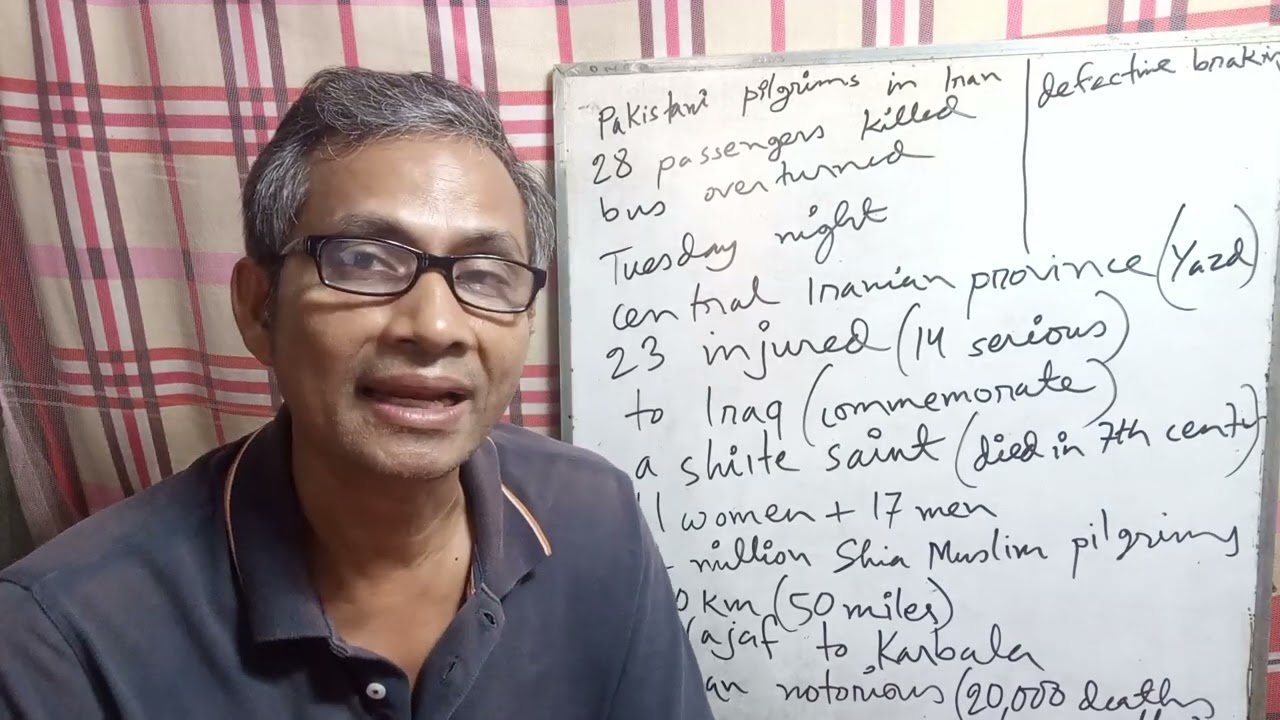 Pakistani pilgrims in Iran
28 passengers killed
bus overturned
Tuesday night
central Iranian province (Yazd)
23 injured (14 serious)
to Iraq (commemorate)
a shiite saint (died in 7th century)
women + 17 men
million Shia Muslim pilgrims
km (50 miles)
ajaf to Karbala
notorious (20,000 deaths
defective brakin